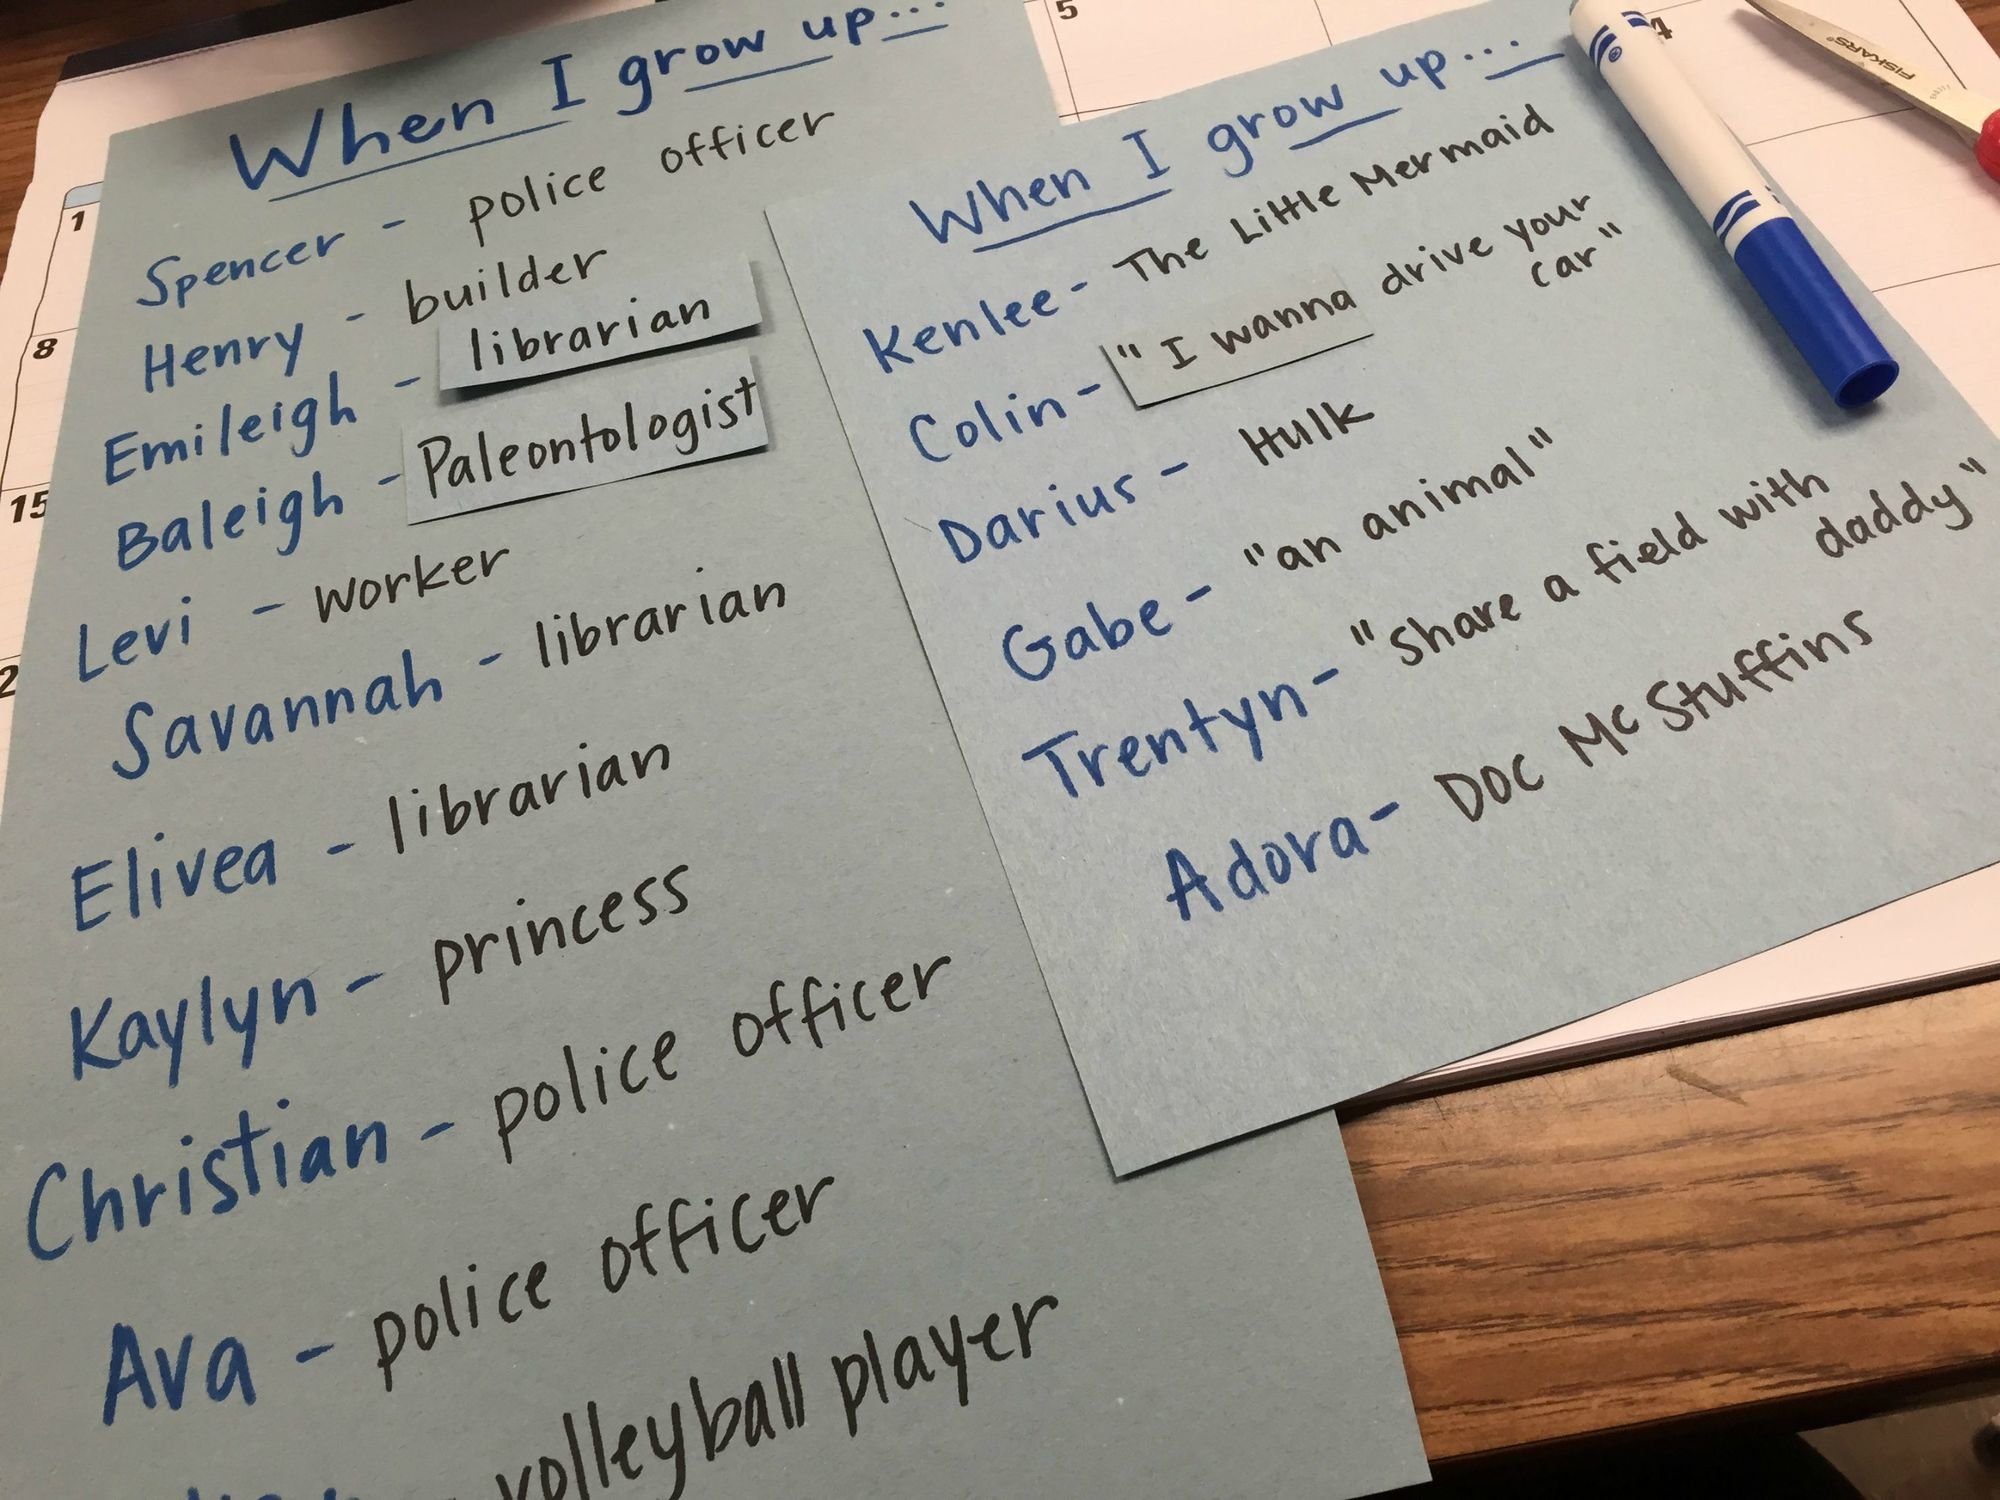 When I grow up...
Spencer - police officer
Henry - builder
Emileigh - librarian
Baleigh - Paleontologist
Levi - worker
Savannah - librarian
Elivea - librarian
Kaylyn - princess
Christian - police officer
Ava - police officer
- volleyball player
When I grow up...
Kenlee - The Little Mermaid
Colin - "I wanna drive your
car"
Darius - Hulk
Gabe - "an animal"
Trentyn - "Share a field with
daddy"
Adora - Doc McStuffins
1
8
15
2
5
FISKARS